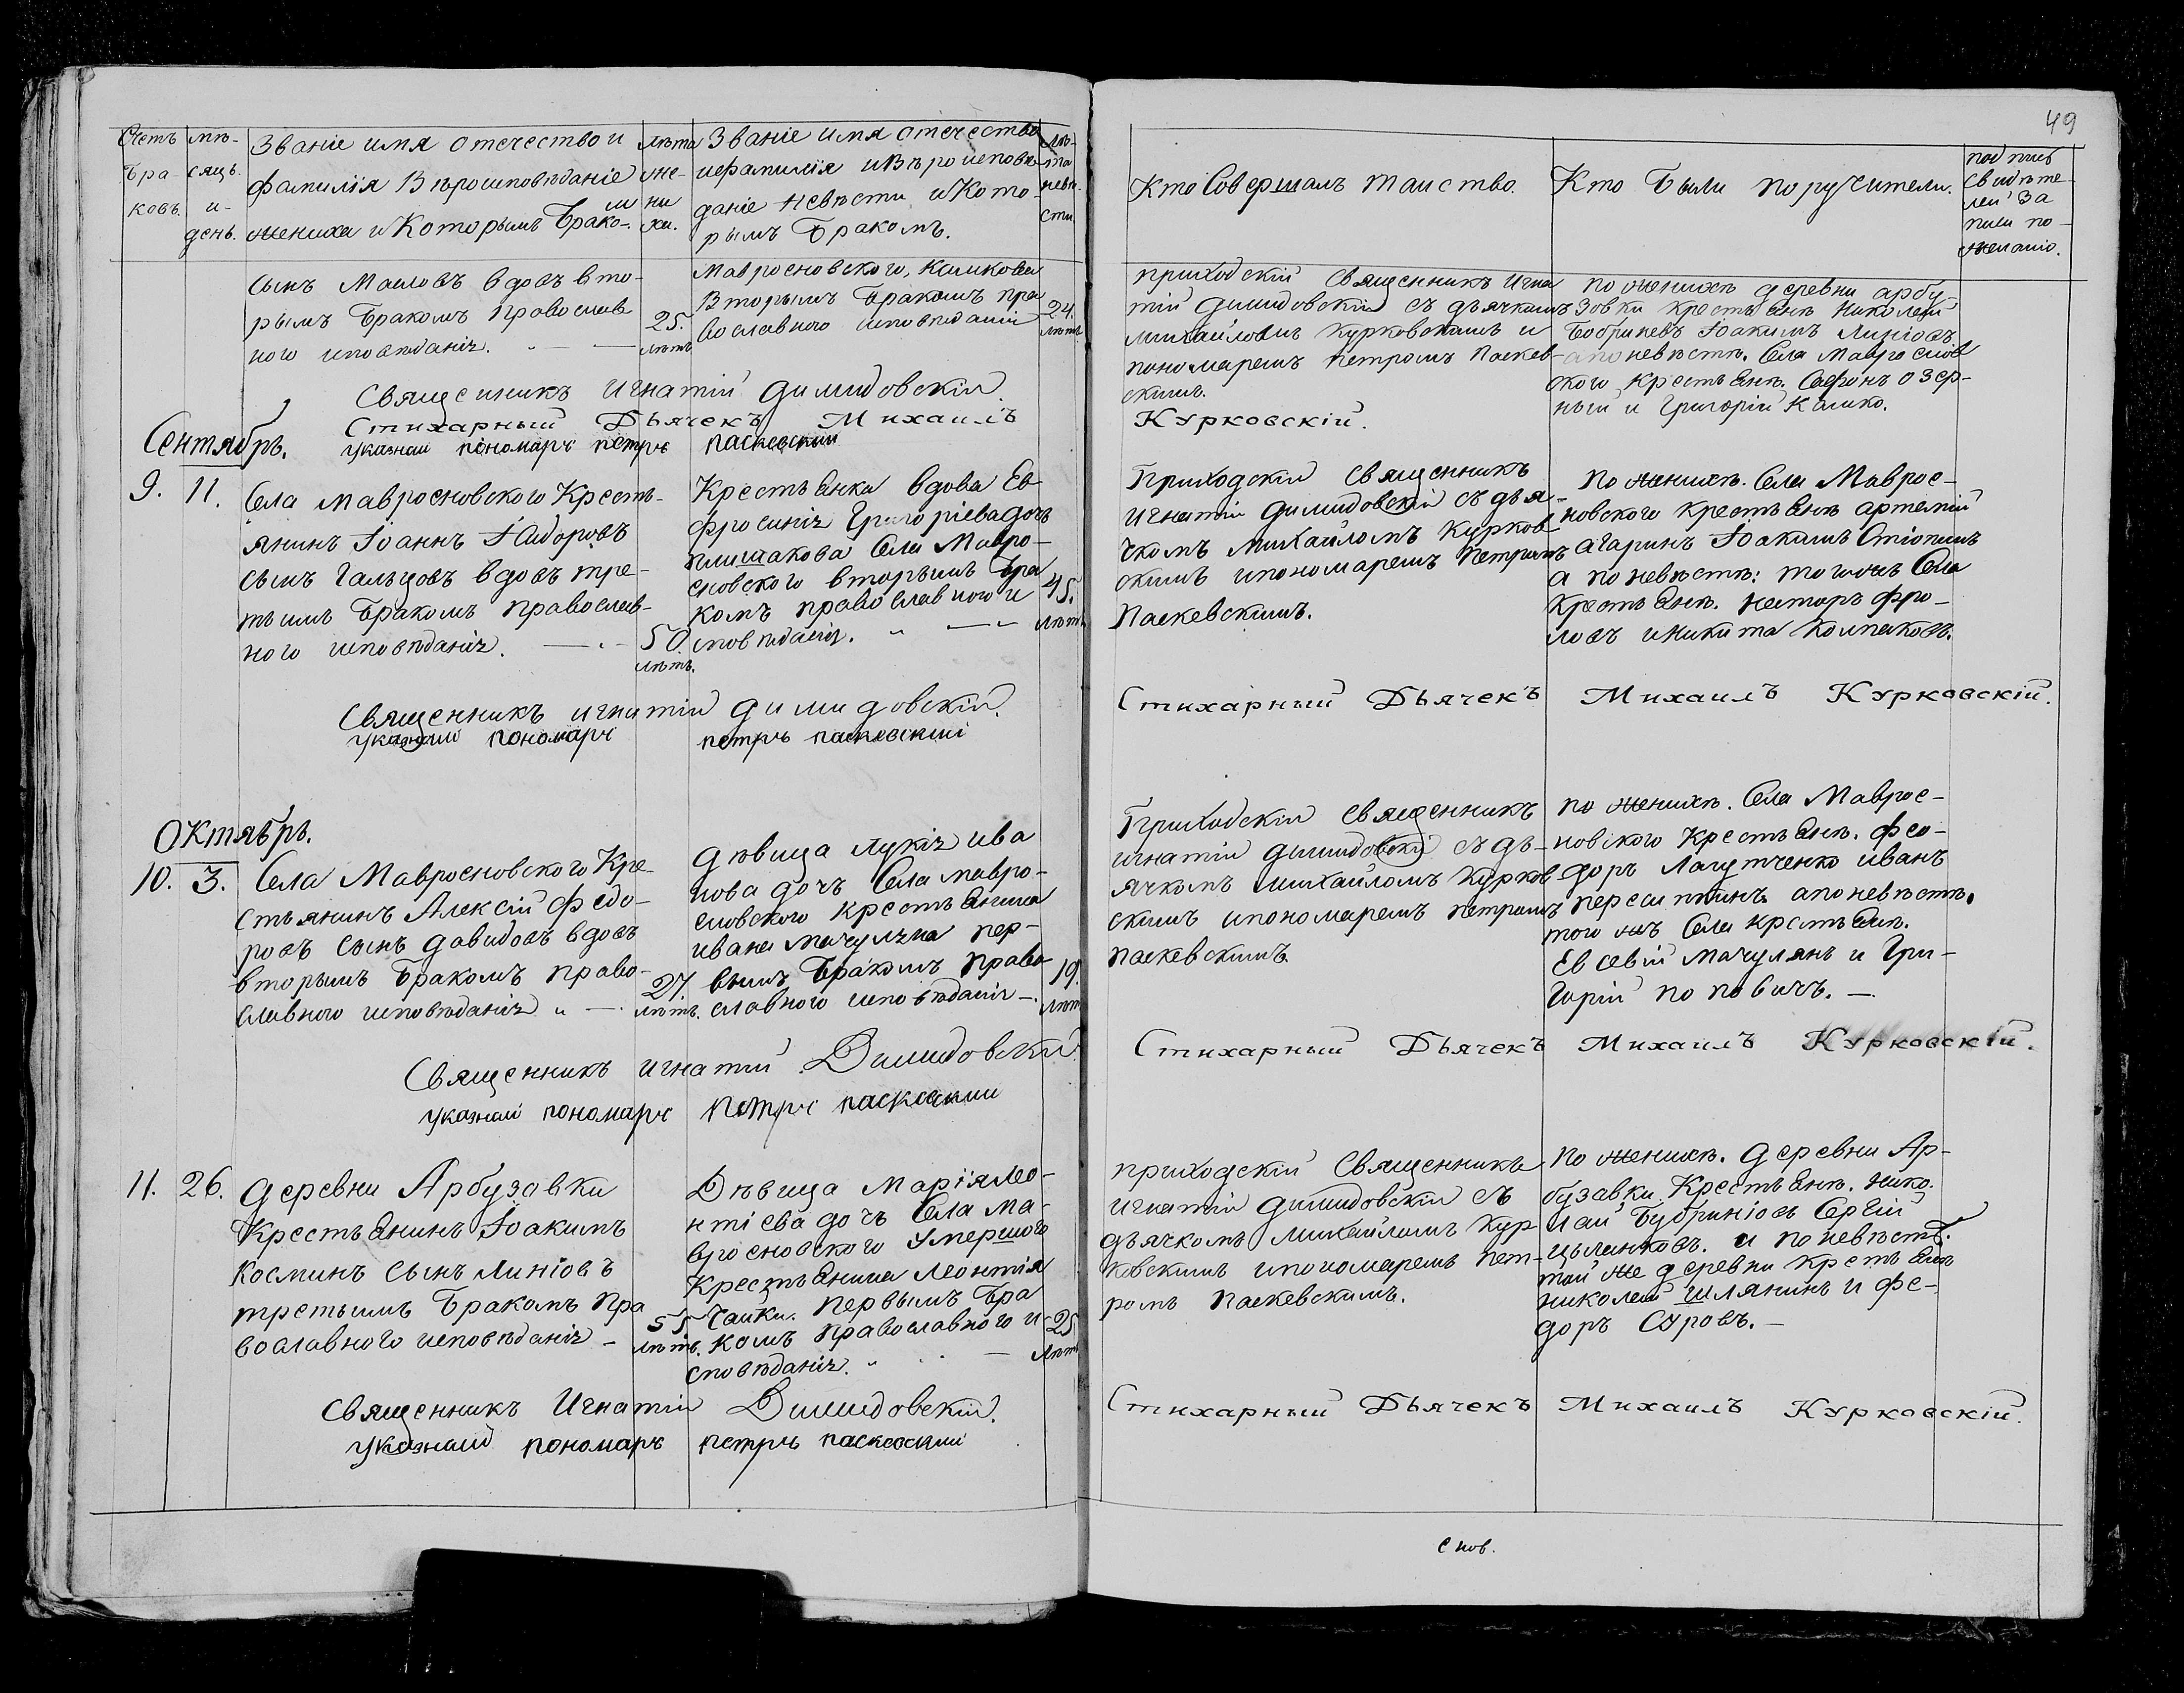 49
Счетъ
бра-
ковъ.
мѣ-
сяцъ.
и-
день.
Званіе имя отечество и
фамилія Вѣроисповѣданіе
жениха и Которымъ брако-
м
лѣта
же-
ни
ха.
Званіе имя отечество
ифамилія иВѣроисповѣ-
даніе невѣсти иКото-
рымъ бракомъ.
лѣ-
та
невѣ-
сти
Кто Совершалъ таиство.
Кто были поручители.
под пись
свидѣте-
лей За
писи по-
желанію.
сынъ Масловъ вдовъ вто-
рымъ бракомъ православ
ного исповѣданія.
25.
лѣтъ
Мавросновского, Калиkова
Вторымъ бракомъ пра
вославного исповѣданій
24.
лѣтъ
приходскій священникъ Игна
тій Димидовскій съ дьячкомъ
михайломъ Курковскимъ и
пономаремъ петромъ Паскев-
скимъ.
по женихѣ деревни арбу
зовки крестьянѣ Николай
Бобриневъ Іоакимъ Линіовъ
апо невѣстѣ. Села Мавроснов
ского крестьянѣ. Сафонъ озер-
ный и Григорій Калико.
Священникъ игнатій Димидовскій.
Стихарный Дьячекъ Михаилъ Курковскій.
указный пономарь петръ паскевский
Сентябрь.
9. 11.
Села мавросновского Кресть-
янинъ Іоаннъ Ісидоровъ
сынъ Гальцовъ вдовъ тре-
тьимъ бракомъ православ-
ного исповѣданія.
50
лѣтъ.
Крестьянка вдова Ев
фросинія Григоріева дочь
плишакова Села Мавро-
сновского вторымъ бра
комъ православного и
сповѣданія.
45.
лѣтъ
Приходскій священникъ
игнатій Димидовскій съ дья-
чкомъ михайломъ Курков
скимъ ипономаремъ петромъ
Паскевскимъ.
По женихѣ. Села Маврос-
новского крестьянѣ артемій
агаринъ Іоакимъ Стіопинъ
а по невѣстѣ: того жъ Села
крестьянѣ. несторъ фро-
ловъ иникита Колпаковъ.
Священникъ игнатій Димидовскій.
Стихарный Дьячекъ Михаилъ Курковскій.
указный пономарь петръ паскевский
Октябрь.
10. 3.
Села Мавросновского Кре-
стьянинъ Алексій Федо-
ровъ сынъ Давидовъ вдовъ
вторымъ бракомъ право-
славного исповѣданія
27
лѣтъ.
дѣвица лукія ива
нова дочь Села мавро-
сновского крестьянина
ивана мачуляна пер-
вымъ бракомъ право
славного исповѣданія
19.
лѣтъ
Приходскій священникъ
игнатій Димидовскій съ дь-
ячкомъ михайломъ Курков
скимъ ипономаремъ петромъ
паскевскимъ.
по женихѣ. Села Маврос-
новского Крестьянѣ. фео-
доръ Лагутченко иванъ
пересипкинъ апо невѣстѣ.
того жъ Села крестьянѣ.
Евсевій Мачулянъ и Гри-
горій поповичъ.
Священникъ игнатій Димидовскій
Стихарный Дьячекъ Михаилъ Курковскій.
указный пономарь петръ паскевский
11. 26.
Деревни Арбузавки
Крестьянинъ Іоакимъ
Косминъ сынъ Линіовъ
третьимъ бракомъ пра
вославного исповѣданія
55
лѣтъ.
Дѣвица Марія Лео-
нтіева дочь Села Ма-
вросновского умершого
крестьянина Леонтія
Чайки. первымъ бра
комъ православного и-
сповѣданія.
25
лѣтъ
приходскій священникъ
игнатій Димидовскій съ
дьячкомъ михайломъ Кур
ковскимъ ипономаремъ пет-
ромъ Паскевскимъ.
по женихѣ. Деревни Ар-
бузавки. Крестьянѣ. Нико
лай Бубриніовъ Сергій
Цыланковъ. и по невѣстѣ.
той же деревни крестьянѣ
николай шлянинъ и фе-
доръ Суровъ.
Священникъ Игнатій Димидовскій.
Стихарный Дьячекъ Михаилъ Курковскій.
указный пономарь петръ паскевский